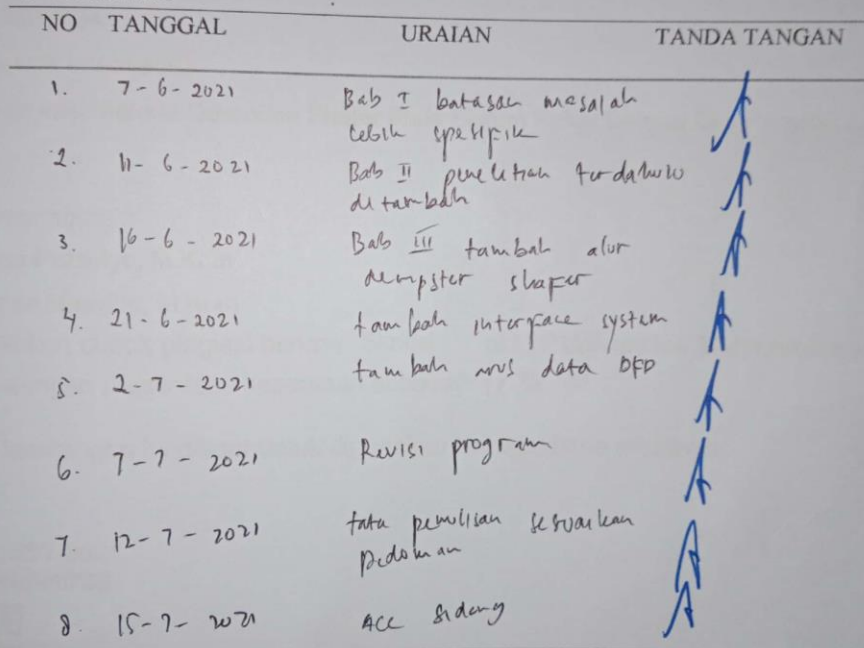 NO TANGGAL URAIAN TANDA TANGAN
1. 7-6-2021 Bab I batasan masalah
lebih spesifik
2. 11-6-2021 Bab II penelitian terdahulu
ditambah
3. 16-6-2021 Bab III tambah alur
dempster shafer
4. 21-6-2021 tambah interface system
5. 2-7-2021 tambah arus data DFD
6. 7-7-2021 Revisi program
7. 12-7-2021 tata penulisan sesuaikan
pedoman
8. 15-7-2021 ACC sidang